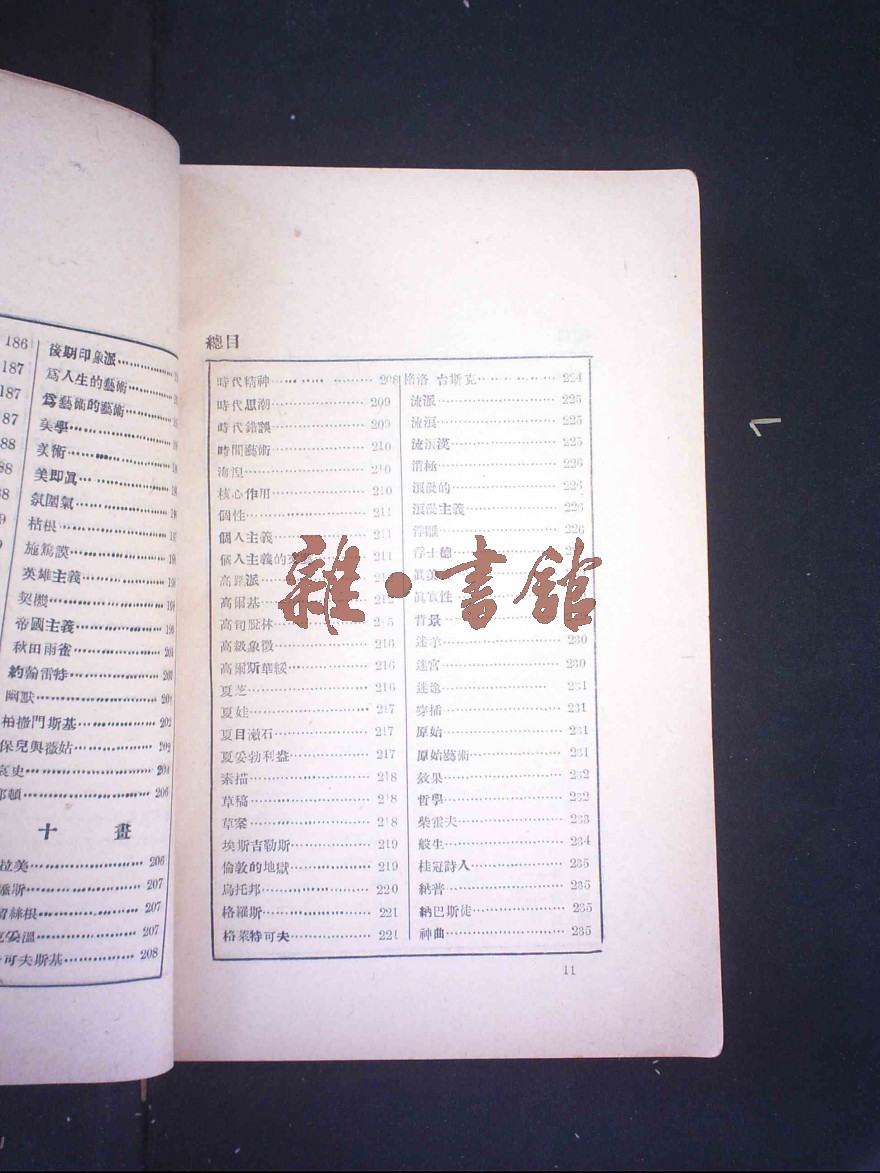 186
187
187
187
88
88
後期印象派
爲人生的藝術
爲藝術的藝術
美學
美術
美卽眞
氛圍氣
桔根
施篤謨
英雄主義
契機
帝國主義
秋田雨雀
約翰雷特
幽默
柏撒門斯基 202
保兒與薇姑 202
哀史 204
都頓 206
十 畫
拉美 206
207
207
207
可夫斯基 208
總目
時代精神 208
時代思潮 209
時代錯誤 209
時間藝術 210
海涅 210
核心作用 210
個性 211
個人主義 211
個人主義的 211
高蹈派
高爾基 212
高司脫林 215
高級象徵 216
高爾斯華綏 216
夏芝 216
夏娃 217
夏目漱石 217
夏芝勃利盎 217
素描 218
草稿 218
草案 218
埃斯吉勒斯 219
倫敦的地獄 219
烏托邦 220
格羅斯 221
格萊特可夫 221
格洛 台斯克 224
流派 225
流浪 225
流浪漢 225
消極 226
浪漫的 226
浪漫主義 226
浮雕 226
浮士德
眞美
眞實性
背景
迷羊 230
迷宮 230
迷途 231
穿插 231
原始 231
原始藝術 231
效果 232
哲學 232
柴霍夫 233
般生 234
桂冠詩人 235
納普 235
納巴斯徒 235
神曲 235
11
雜·書館